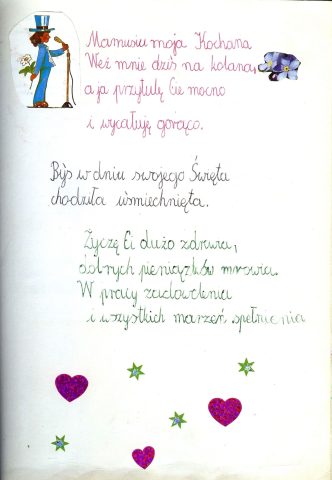 Mamusiu moja Kochana
Weź mnie dziś na kolana,
a ja przytulę Cie mocno
i wycałuję gorąco.
Byś w dniu swojego Święta
chodziła uśmiechnięta.
Życzę Ci dużo zdrowia,
dobrych pieniążków mrowia.
W pracy zadowolenia
i wszystkich marzeń spełnienia